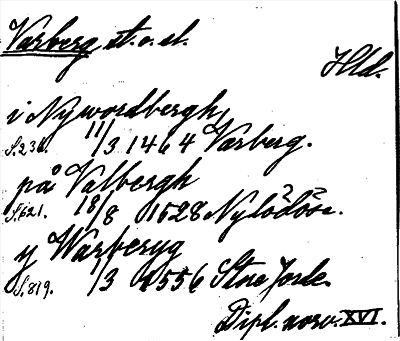 Varberg st. o. sl.
Hld.
i Nywordbergh,
S. 23 11/3 1464 Varberg.
på Valbergh
S. 621. 18/8 1528 Nylödöse.
y Warberyg
S. 819. 1/3 1556
Dipl. norv. XVI.